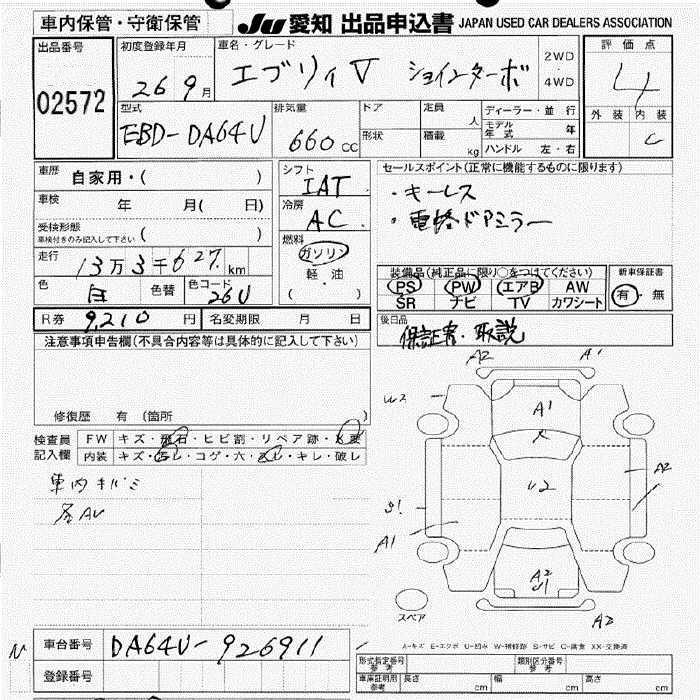 車内保管・守衛保管 JU 愛知 出品申込書 JAPAN USED CAR DEALERS ASSOCIATION
出品番号 初度登録年月 車名・グレード 2WD 評価点
02572 26 9月 エブリィV ジョインターボ ・ 4WD 4
型式 排気量 ドア 定員 人 ディーラー・並行 外装 内装
EBD-DA64V 660cc 形状 積載 kg モデル年式 年 C
ハンドル 左・右
車歴 自家用・( ) シフト IAT セールスポイント(正常に機能するものに限ります)
車検 年 月( 日) 冷房 AC ・キーレス
受検形態 車検付きのみ記入して下さい ( ) 燃料 ガソリン ・電格ドアミラー
走行 13万3千627km 軽・油
色 白 色替 色コード 26U ( ・ )
装備品(純正品に限り○をつけてください) 新車保証書
PS PW エアB AW 有・無
SR ナビ TV カワシート
R券 9,210円 名変期限 月 日 後日品
保証書・取説
注意事項申告欄(不具合内容等は具体的に記入して下さい)
修復歴 有 (箇所 )
検査員 FW キズ・飛石・ヒビ割・リペア跡・X要
記入欄 内装 キズ・汚レ・コゲ・穴・スレ・キレ・破レ
車内キバミ
A2 A1
W2 A1
X
U2 A2
S1
A1
A2
U1
スペア A2
A=キズ E=エクボ U=凹み W=補修跡 S=サビ C=腐食 XX=交換済
車台番号 DA64V-926911 形式指定番号 参考 類別区分番号 参考
登録番号 車庫証明用 参考 長さ cm 幅 cm 高さ cm